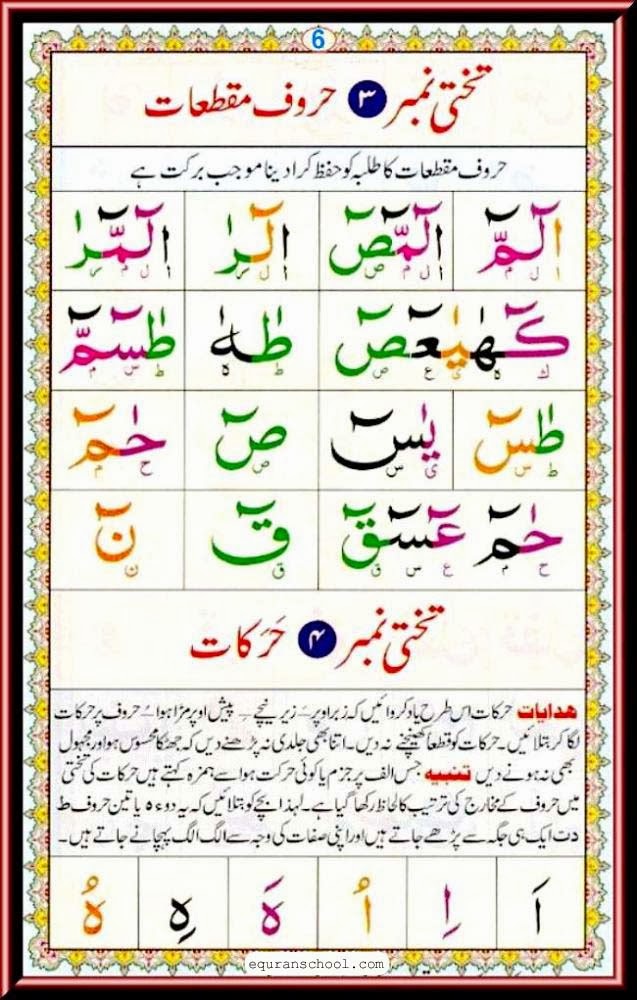 6
تختی نمبر ۳ حروف مقطعات
حروف مقطعات کا طلبہ کو حفظ کرا دینا موجب برکت ہے
الٓمّٓ الٓمّٓصٓ الٓرٰ الٓمّٓرٰ
ا ل م ا ل م ص ا ل ر ا ل م ر
كٓهٰيٰعٓصٓ طٰهٰ طٰسٓمّٓ
ك ه ی ع ص ط ه ط س م
طٰسٓ يٰسٓ صٓ حٰمٓ
ط س ی س ص ح م
حٰمٓ عٓسٓقٓ قٓ نٓ
ح م ع س ق ق ن
تختی نمبر ۴ حَرَکات
ھدایات حرکات اس طرح یاد کروائیں کہ زبر اوپر ـَ زیر نیچے ـِ پیش اوپر مڑا ہوا ـُ حروف پر حرکات
لگا کر بتلائیں۔ حرکات کو قطعاً کھینچنے نہ دیں۔ اتنا بھی جلدی نہ پڑھنے دیں کہ جھٹکا محسوس ہو اور مجہول
بھی نہ ہونے دیں تنبیہ جس الف پر جزم یا کوئی حرکت ہو اسے ہمزہ کہتے ہیں حرکات کی تختی
میں حروف کے مخارج کی ترتیب کا لحاظ رکھا گیا ہے۔ لہٰذا بچے کو بتلائیں کہ یہ دو ء ہ یا تین حروف ط
د ت ایک ہی جگہ سے پڑھے جاتے ہیں اور اپنی صفات کی وجہ سے الگ الگ پہچانے جاتے ہیں۔
اَ اِ اُ هَ هِ هُ
equranschool.com